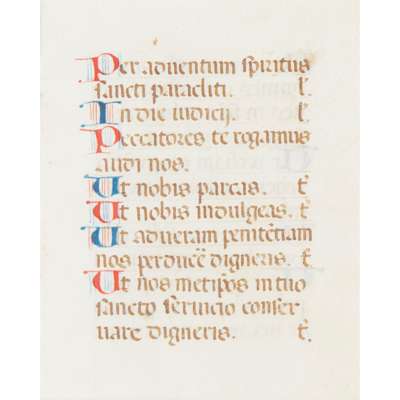 Per adventum spiritus
sancti paracliti. l̃.
In die iudicij. l̃.
Peccatores te rogamus
audi nos.
Ut nobis parcas. t̃.
Ut nobis indulgeas. t̃.
Ut ad veram penitētiam
nos perducē digneris. t̃.
Ut nos metip̄os in tuo
sancto servicio conser
vare digneris. t̃.